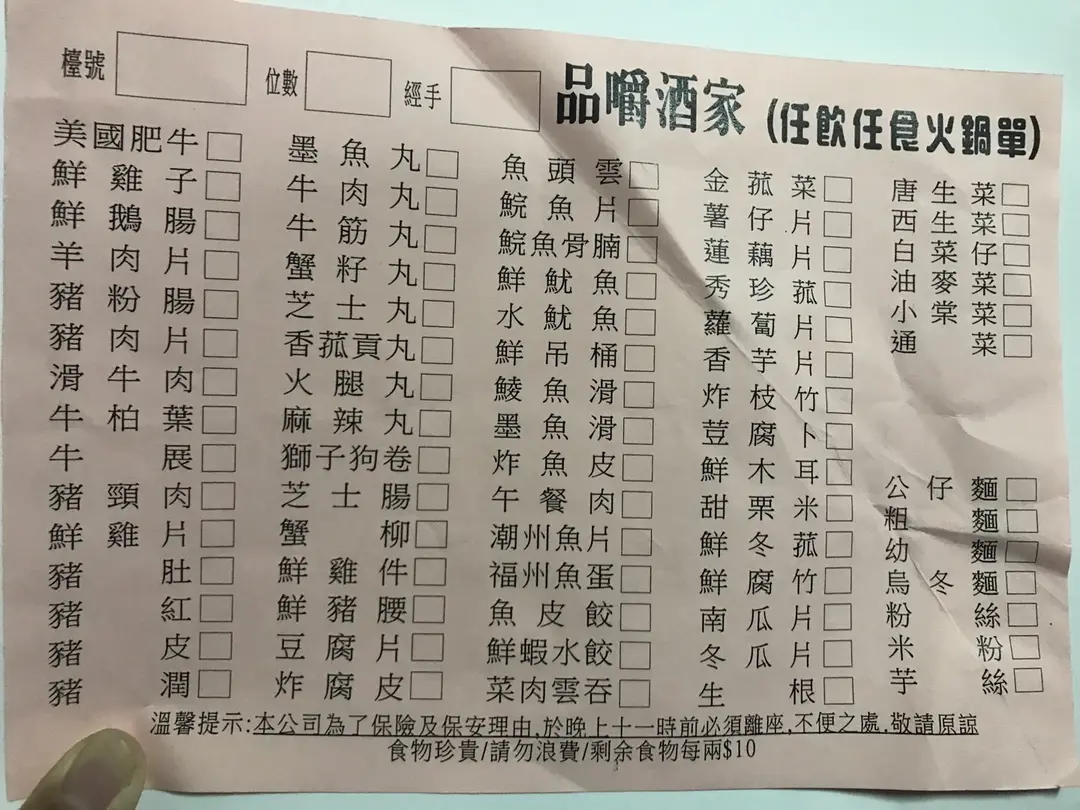 檯號 位數 經手 品嚼酒家 (任飲任食火鍋單)
美國肥牛
鮮雞子
鮮鵝腸
羊肉片
豬粉腸
豬肉片
滑牛肉
牛柏葉
牛展
豬頸肉
鮮雞片
豬肚
豬紅
豬皮
豬潤
墨魚丸
牛肉丸
牛筋丸
蟹籽丸
芝士丸
香菰貢丸
火腿丸
麻辣丸
獅子狗卷
芝士腸
蟹柳
鮮雞件
鮮豬腰
豆腐片
炸腐皮
魚頭雲
鯇魚片
鯇魚骨腩
鮮魷魚
水魷魚
鮮吊桶
鯪魚滑
墨魚滑
炸魚皮
午餐肉
潮州魚片
福州魚蛋
魚皮餃
鮮蝦水餃
菜肉雲吞
金菰菜
薯仔片
蓮藕片
秀珍菰
蘿蔔片
香芋片
炸枝竹
荳腐卜
鮮木耳
甜栗米
鮮冬菰
鮮腐竹
南瓜片
冬瓜片
生根
唐生菜
西生菜
白菜仔
油麥菜
小棠菜
通菜
公仔麵
粗麵
幼麵
烏冬麵
粉絲
米粉
芋絲
溫馨提示:本公司為了保險及保安理由,於晚上十一時前必須離座,不便之處,敬請原諒
食物珍貴/請勿浪費/剩余食物每兩$10